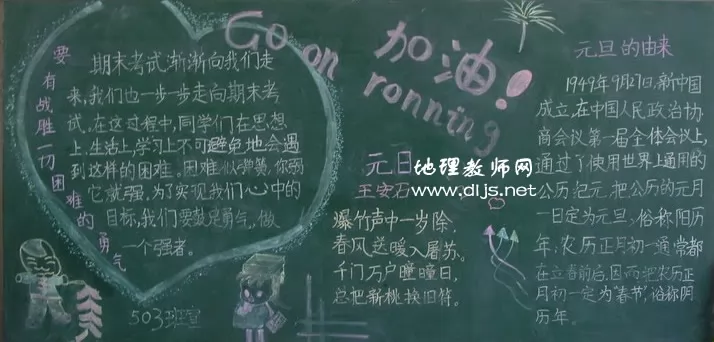 要有战胜一切困难的勇气
期末考试渐渐向我们走
来,我们也一步一步走向期末考
试,在这过程中,同学们在思想
上,生活上,学习上不可避免地会遇
到这样的困难。困难似弹簧,你弱
它就强。为了实现我们心中的
目标,我们要鼓足勇气,做
一个强者。
503班宣
Go on
加油!
ronning
元日
王安石
爆竹声中一岁除,
春风送暖入屠苏。
千门万户曈曈日,
总把新桃换旧符。
地理教师网
www.dljs.net
元旦的由来
1949年9月27日,新中国
成立,在中国人民政治协
商会议第一届全体会议上,
通过了使用世界上通用的
公历纪元,把公历的元月
一日定为元旦,俗称阳历
年,农历正月初一通常都
在立春前后,因而把农历正
月初一定为“春节”,俗称阴
历年。